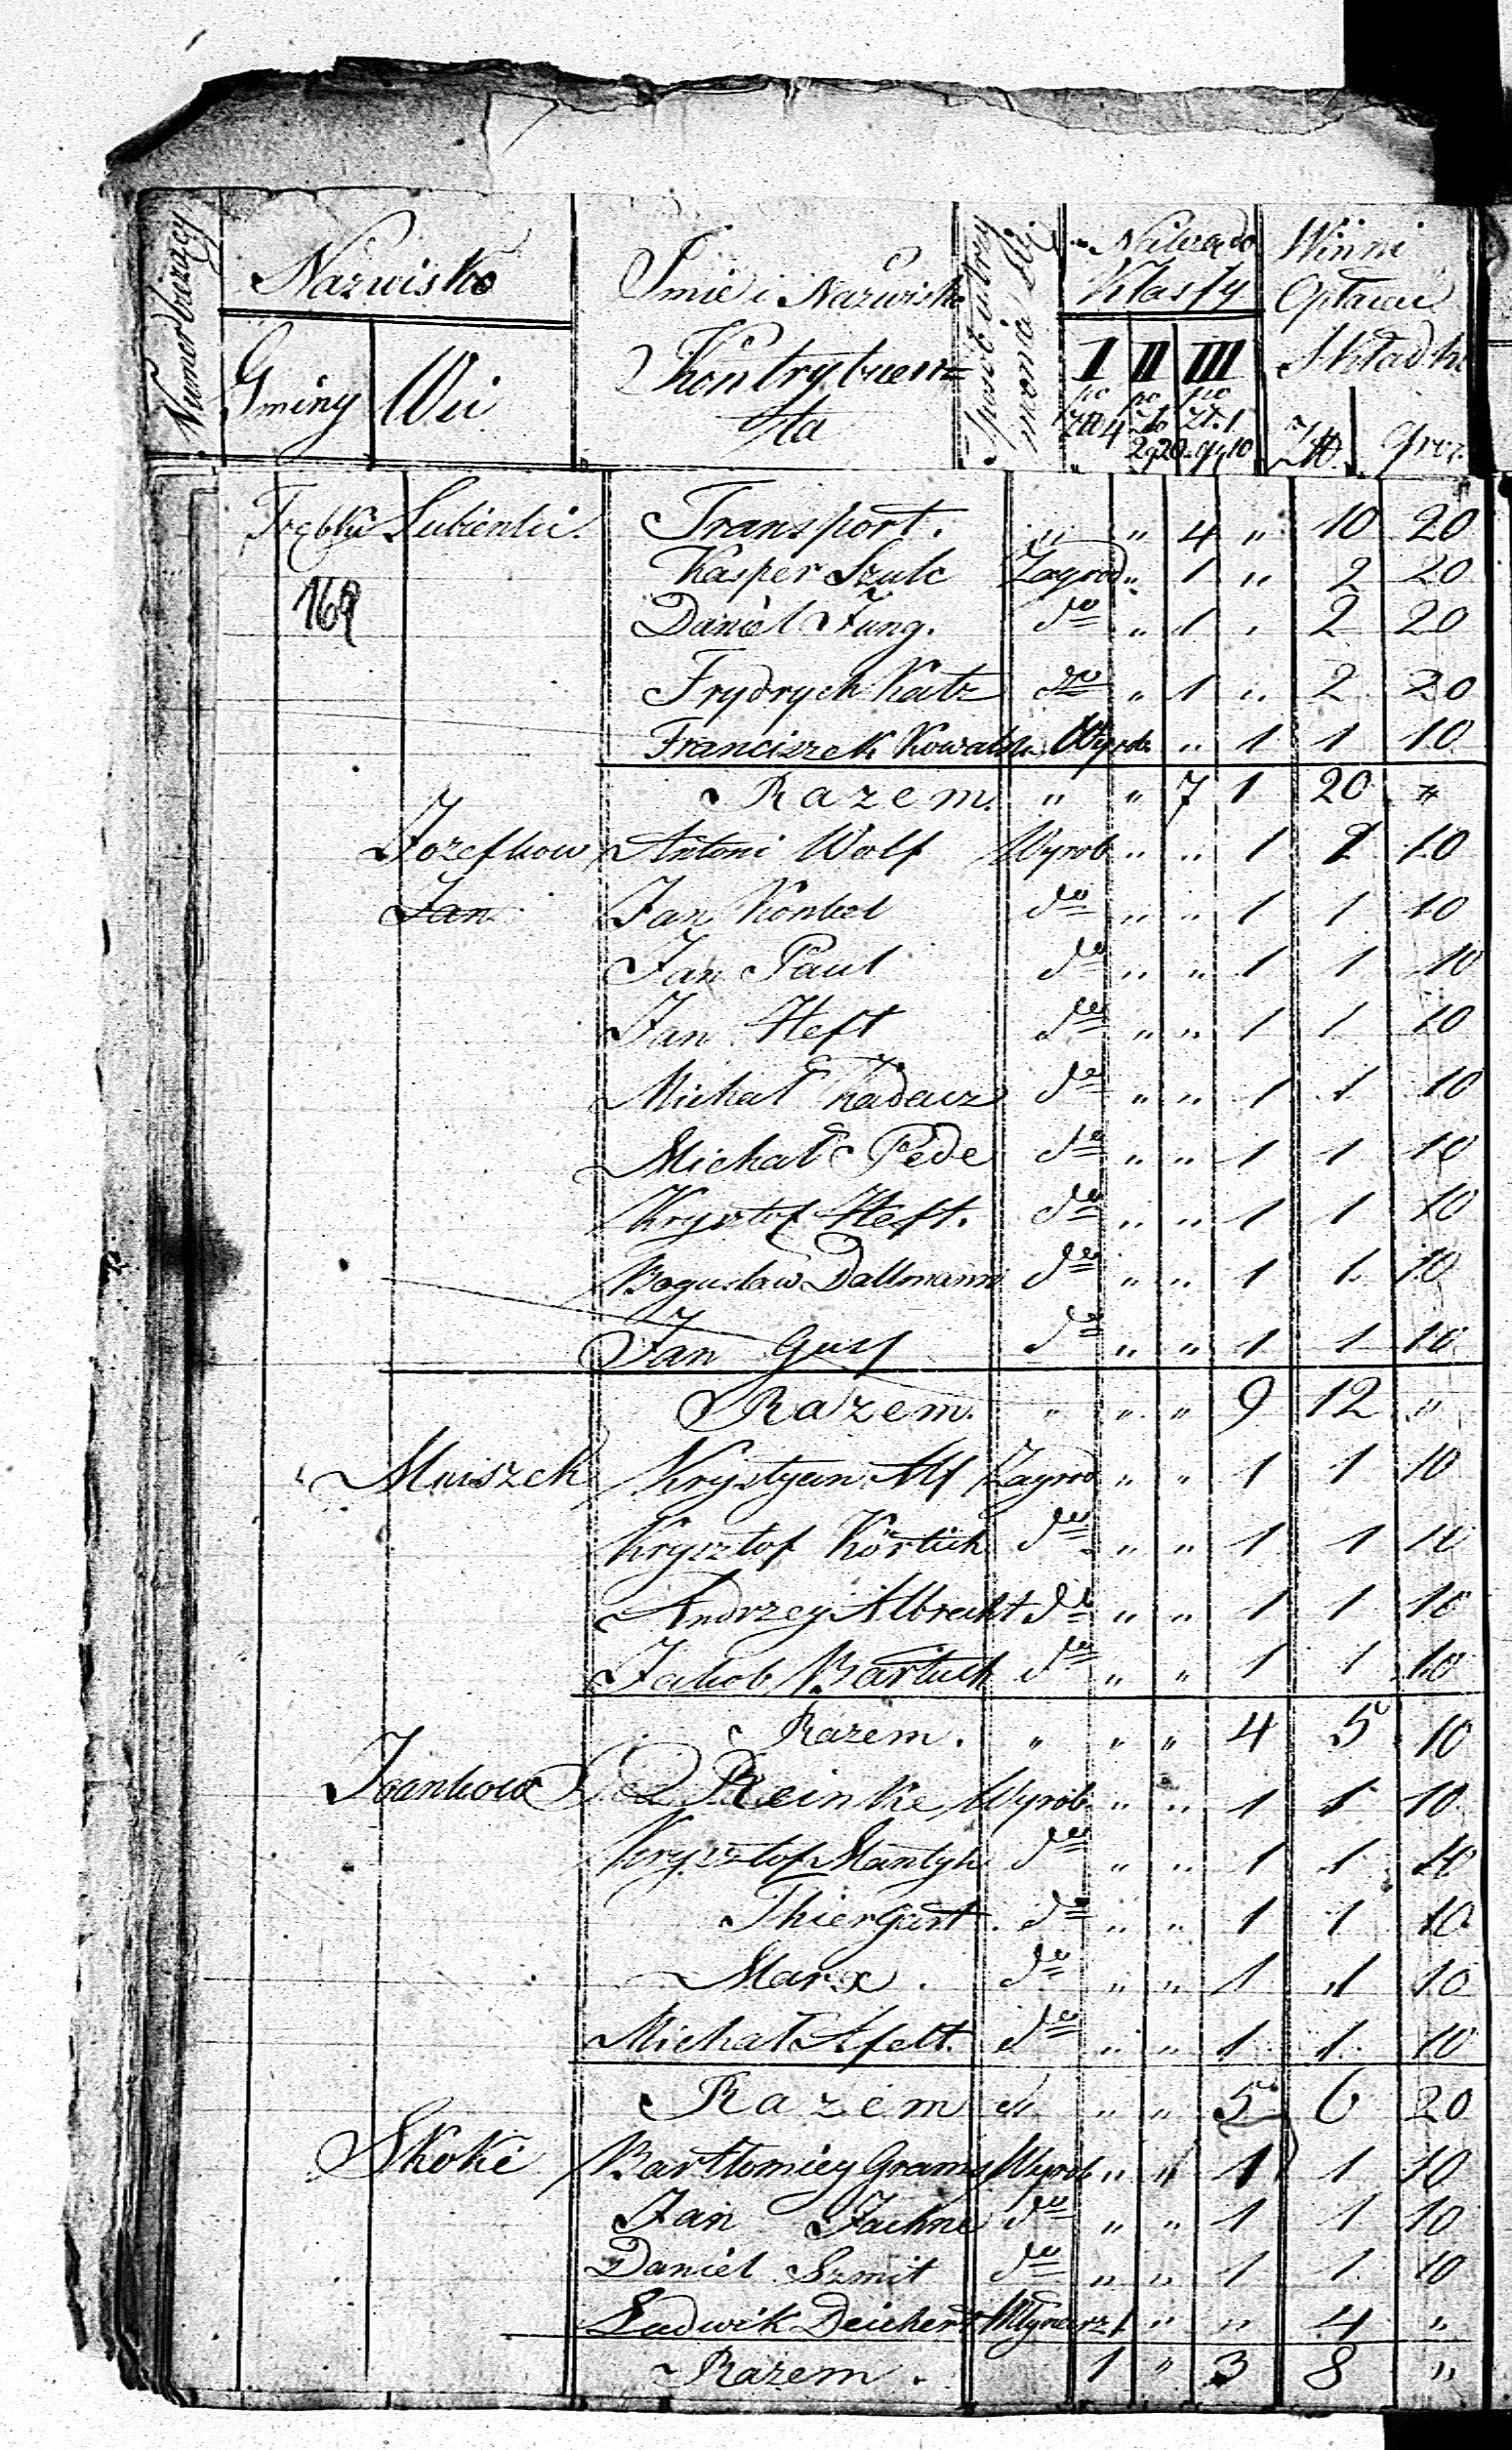 Numer bieżący
Nazwisko
Gminy Wsi
Imie i Nazwisko
Kontrybuen=
sta
Sposób utrzy
mania się
Należą do
Klassy
I II III
po po po
Zł 4 Zł. Zł. 1
2 g 20 gr 10
Winni
Opłacać
Składki
Zł. grosz.
Trębki Lubieńki. Transport. " " 4 " 10 20
Kasper Szulc Zagrod " 1 " 2 20
169 Daniel Jung. do " 1 " 2 20
Frydrych Katz do " 1 " 2 20
Franciszek Kowalski Wyrob. " 1 1 10
Razem. " " 7 1 20 "
Jozefkow Antoni Wolf Wyrob " " 1 1 10
Jan Jan Konkel do " " 1 1 10
Jan Paul do " " 1 1 10
Jan Heft do " " 1 1 10
Michał do " " 1 1 10
Michał Pede do " " 1 1 10
Krysztof Heft. do " " 1 1 10
Bogusław Dallmann do " " 1 1 10
Jan Guss do " " 1 1 10
Razem. " " " 9 12 "
Mniszek Krystyan Alf Zagrod " " 1 1 10
Krysztof Körtich do " " 1 1 10
Andrzey Albrecht do " " 1 1 10
Jakob Bartuch do " " 1 1 10
Razem. " " " 4 5 10
Iwankowa Reinke Wyrob. " " 1 1 10
Krysztof Mantyk do " " 1 1 10
Thiergart. do " " 1 1 10
Marx. do " " 1 1 10
Michał Afelt. do " " 1 1 10
Razem " " " 5 6 20
Skoki Bartłomiéy Grams Wyrob " " 1 1 10
Jan Jachne do " " 1 1 10
Daniel Szmit do " " 1 1 10
Ludwik Deichert Młynarz 1 " " 4 "
Razem. 1 " 3 8 "